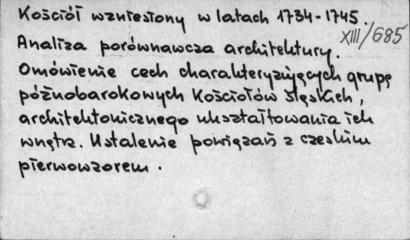 Kościół wzniesiony w latach 1734-1745.
XIII/685
Analiza porównawcza architektury.
Omówienie cech charakteryzujących grupę
późnobarokowych kościołów śląskich,
architektonicznego ukształtowania ich
wnętrz. Ustalenie powiązań z czeskim
pierwowzorem.